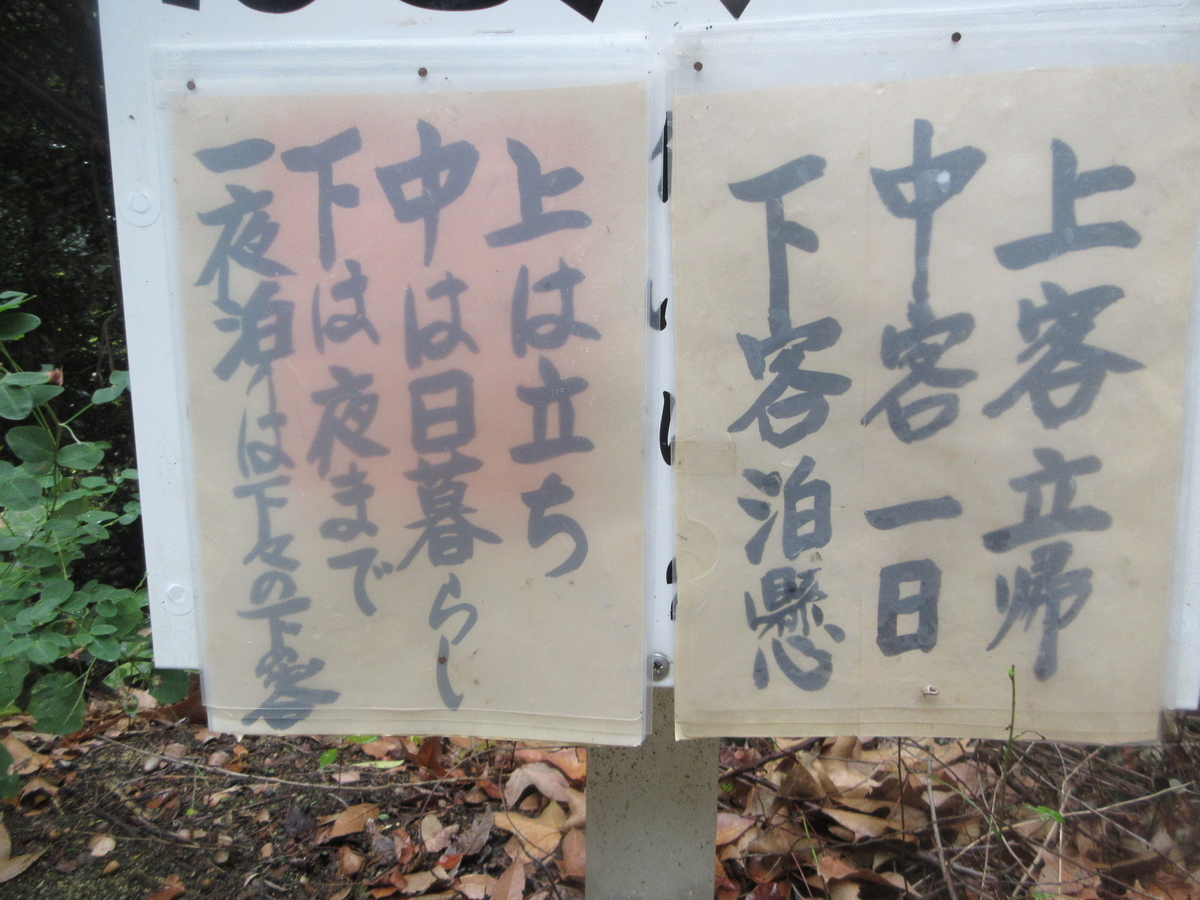 上客立帰
中客一日
下客泊懸
上は立ち
中は日暮らし
下は夜まで
一夜泊りは下々の下客